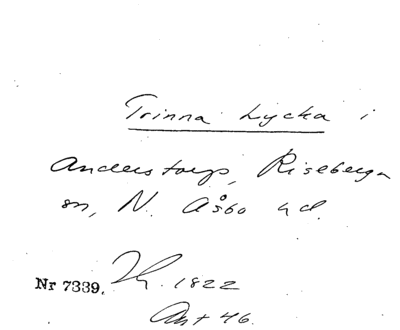 Trinna Lycka i
Anderstorp, Riseberga
sn, N. Åsbo hd.
Nr 7339. Th. 1822
Ant 46.